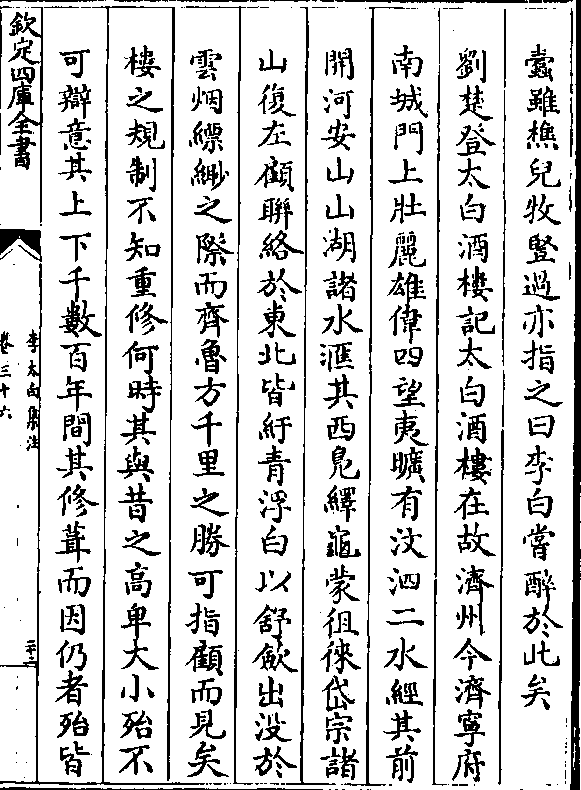 蠧雖樵兒牧豎過亦指之曰李白嘗醉於此矣
劉楚登太白酒樓記太白酒樓在故濟州今濟寧府
南城門上壯麗雄偉四望夷曠有汶泗二水經其前
開河安山山湖諸水滙其西鳬繹龜蒙徂徠岱宗諸
山復左顧聯絡於東北皆紆青浮白以舒歛出没於
雲烟縹緲之際而齊魯方千里之勝可指顧而見矣
樓之規制不知重修何時其與昔之高卑大小殆不
可辯意其上下千數百年間其修葺而因仍者殆皆
欽定四庫全書
李太白集注
卷三十六
三十二